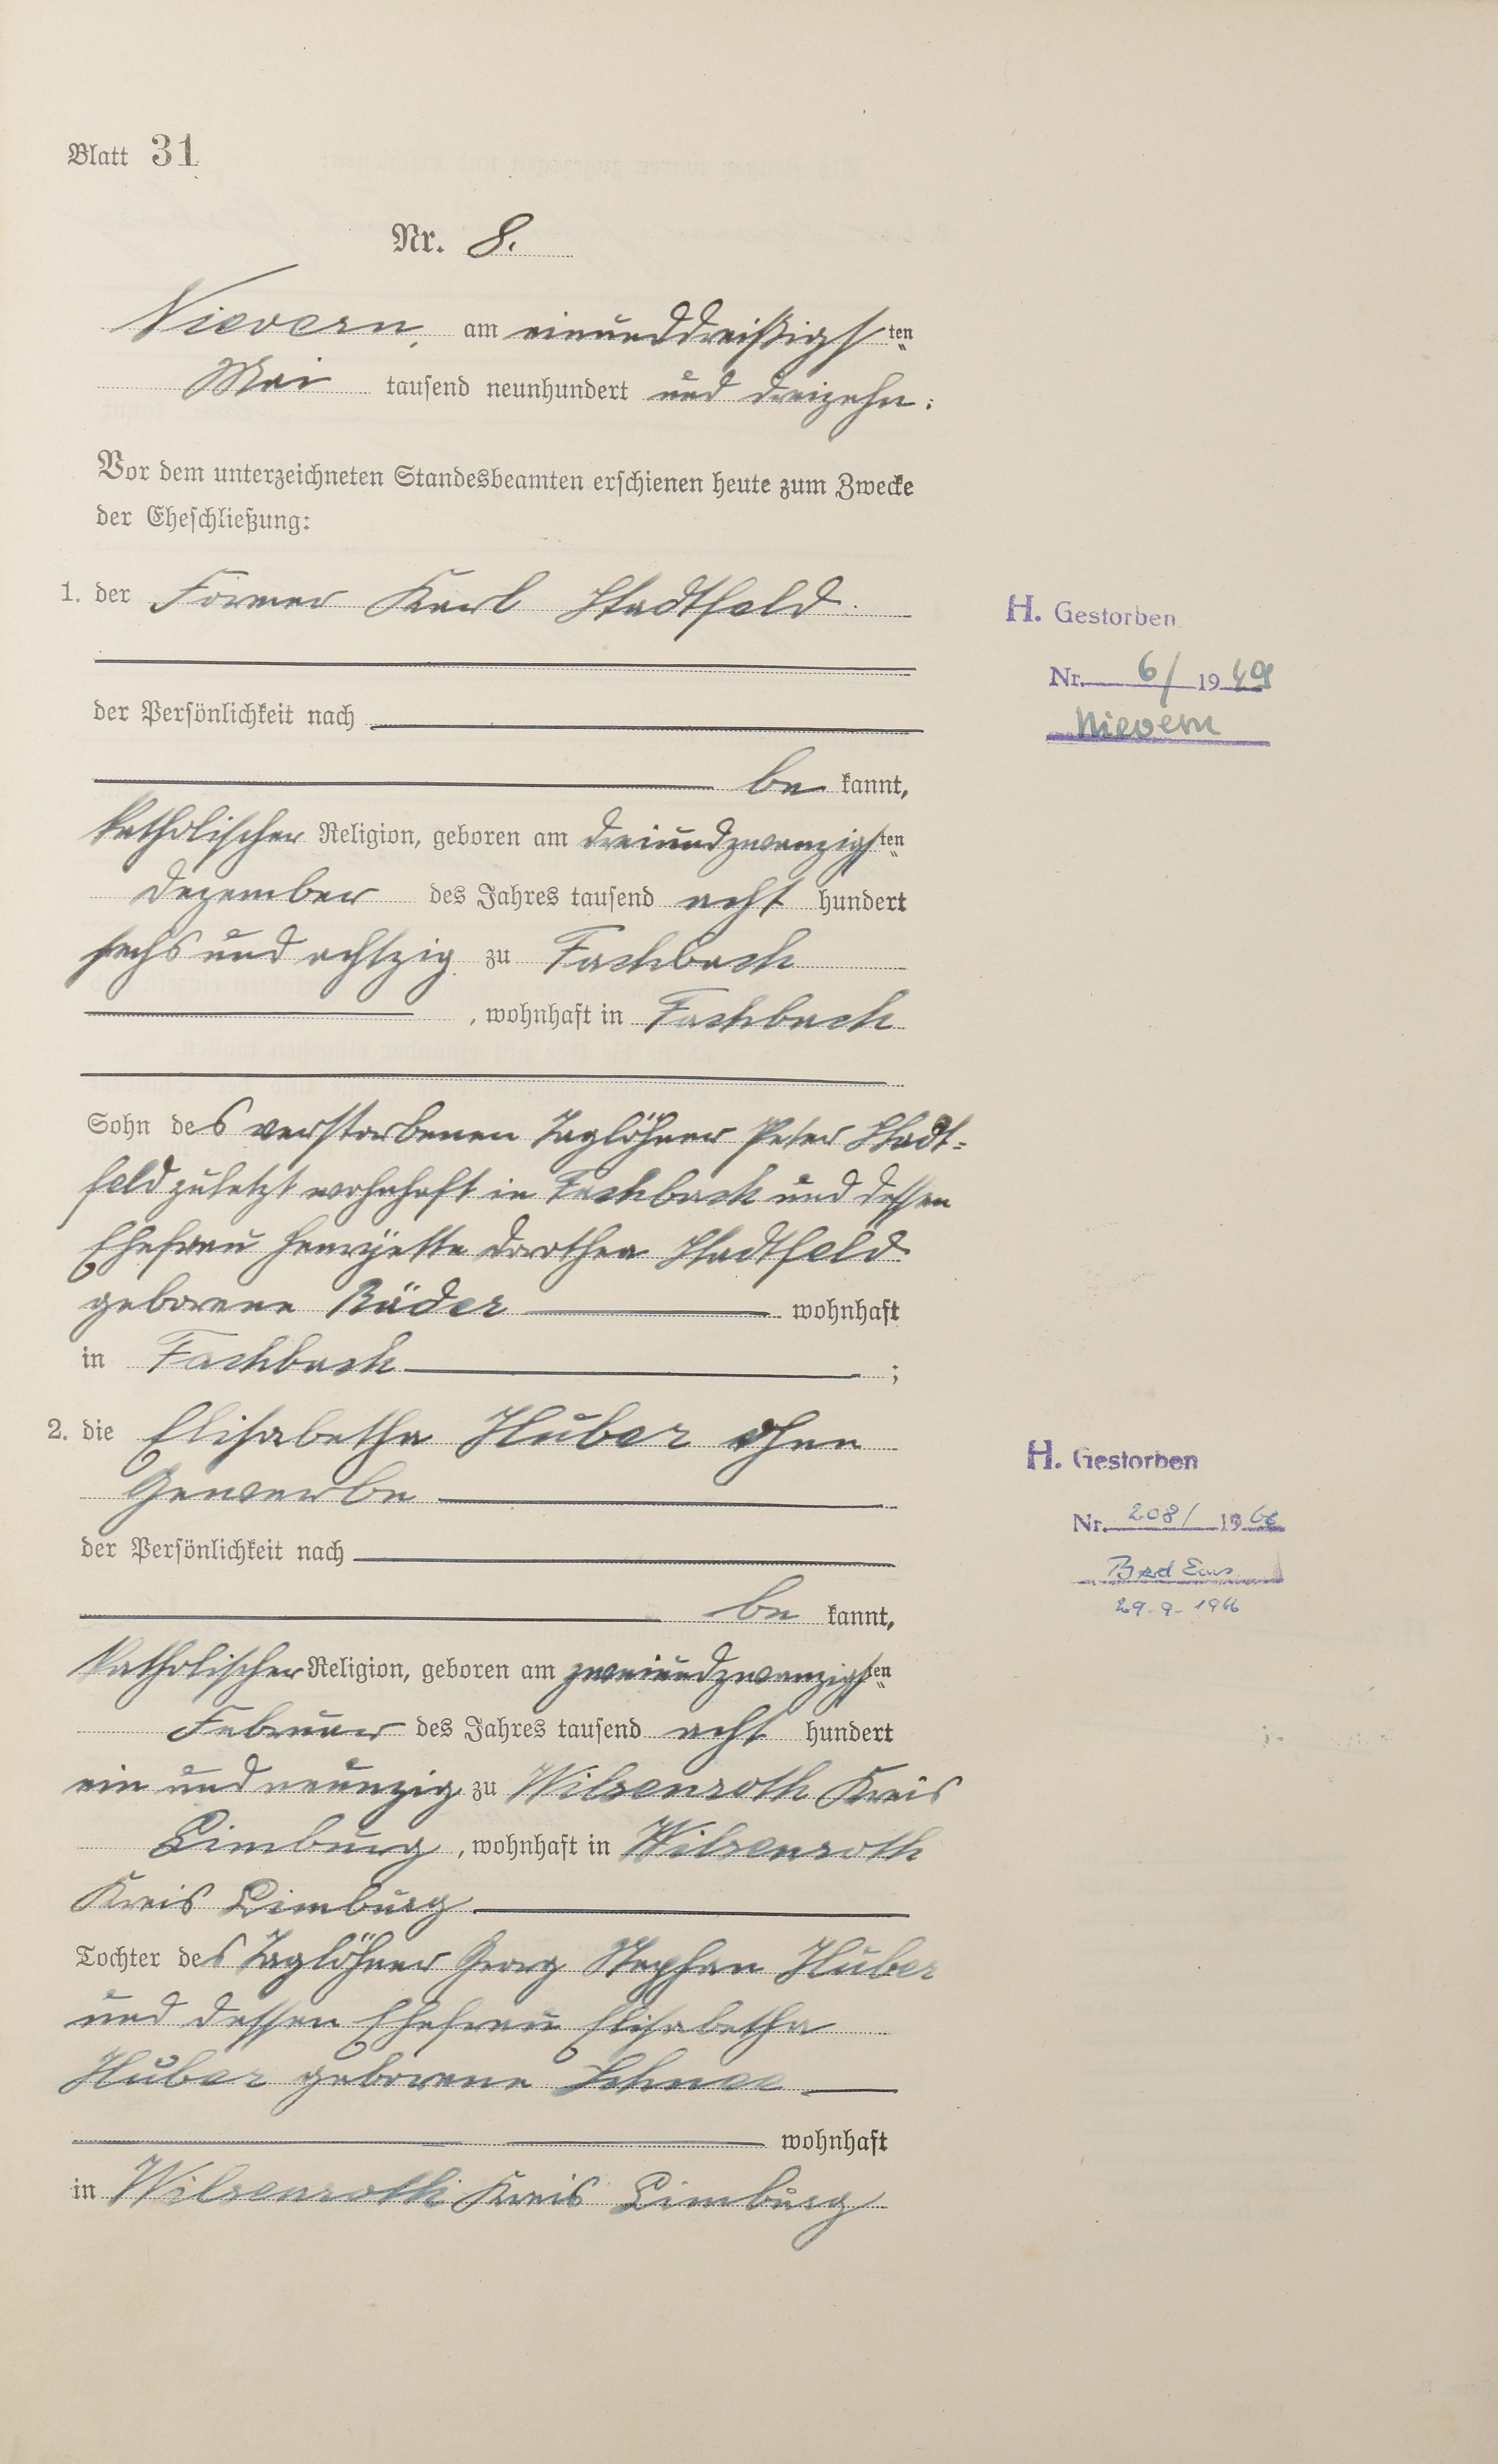 Blatt 31
Nr. 8.
Nievern, am einunddreißigsten
Mai tausend neunhundert und dreizehn.
Vor dem unterzeichneten Standesbeamten erschienen heute zum Zwecke
der Eheschließung:
1. der Former Karl Stadtfeld
der Persönlichkeit nach
be kannt,
katholischer Religion, geboren am dreiundzwanzigsten
Dezember des Jahres tausend acht hundert
sechs und achtzig zu Fachbach
, wohnhaft in Fachbach
Sohn des verstorbenen Taglöhner Peter Stadt=
feld zuletzt wohnhaft in Fachbach und dessen
Ehefrau Henryette Dorothea Stadtfeld
geborene Räder wohnhaft
in Fachbach ;
2. die Elisabetha Huber ohne
Gewerbe
der Persönlichkeit nach
be kannt,
katholischer Religion, geboren am zweiundzwanzigsten
Februar des Jahres tausend acht hundert
ein und neunzig zu Wilsenroth Kreis
Limburg, wohnhaft in Wilsenroth
Kreis Limburg
Tochter des Taglöhner Georg Stephan Huber
und dessen Ehefrau Elisabetha
Huber geborene Schnee
wohnhaft
in Wilsenroth Kreis Limburg
H. Gestorben
Nr. 6/ 1949
Nievern
H. Gestorben
Nr. 208/ 1966
Bad Ems
29.9.1966